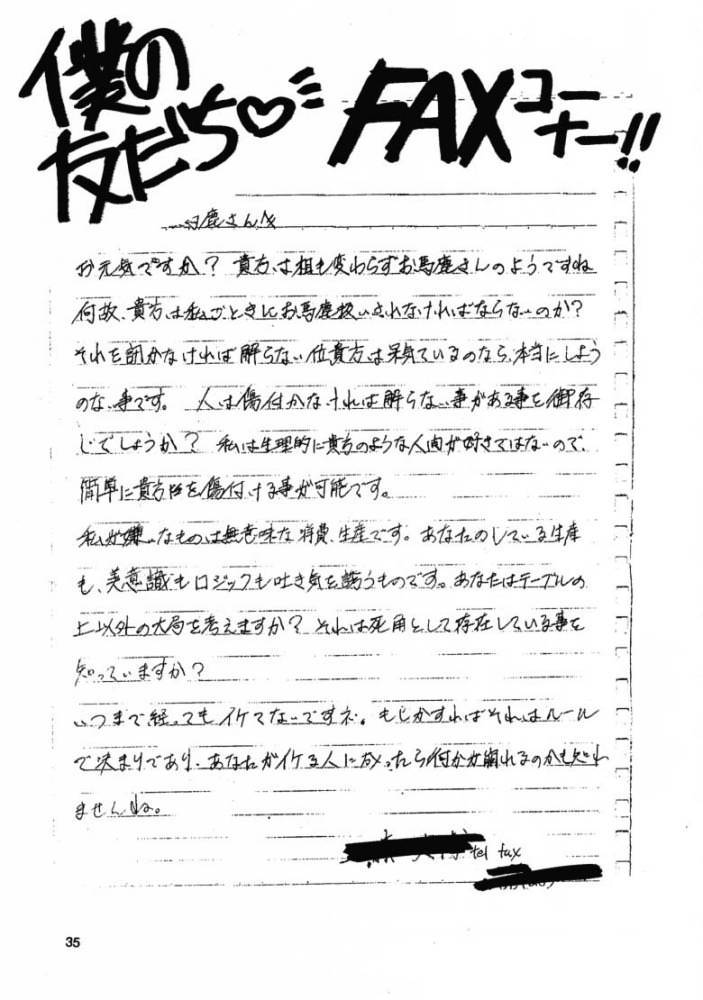 僕の
友だち♡ FAXコーナー!!
馬鹿さんへ
お元気ですか？ 貴方は相も変わらずお馬鹿さんのようですね
何故、貴方は私ごときにお馬鹿扱いされなければならないのか？
それを訊かなければ解らない位貴方は呆気ているのなら、本当にしよう
のない事です。 人は傷付かなければ解らない事がある事を御存
じでしょうか？ 私は生理的に貴方のような人間が好きではないので、
簡単に貴方を傷付ける事が可能です。
私が嫌いなものは無意味な消費、生産です。あなたのしている生産
も、美意識もロジックも吐き気を誘うものです。あなたはテーブルの
上以外の大局を考えますか？ それは死角として存在している事を
知っていますか？
いつまで経ってもイケてないですネ。もしかすればそれはルール
で決まりであり、あなたがイケる人になったら何かが崩れるのかも知れ
ませんね。
tel fax
35